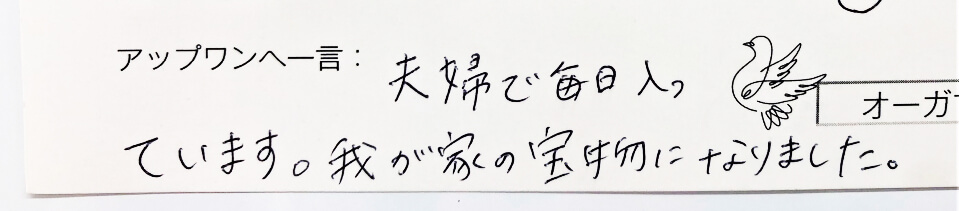 アップワンへ一言：
夫婦で毎日入っ
ています。我が家の宝物になりました。
オーガ